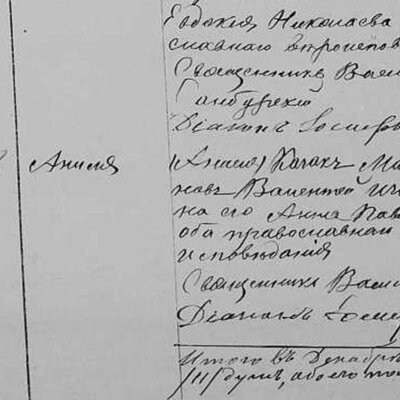 Евдокія Николаева
славнаго вѣроиспов
Священникъ Васи
Діаконъ Іосифъ
Анисія
(Анисія) Казакъ Ма
новъ Валентей И
на его Анна Пав
оба православнаго
исповѣданія
Священникъ Васи
Діаконъ Іосиф
Итого въ Декабрѣ
/11/ душъ, обоего по